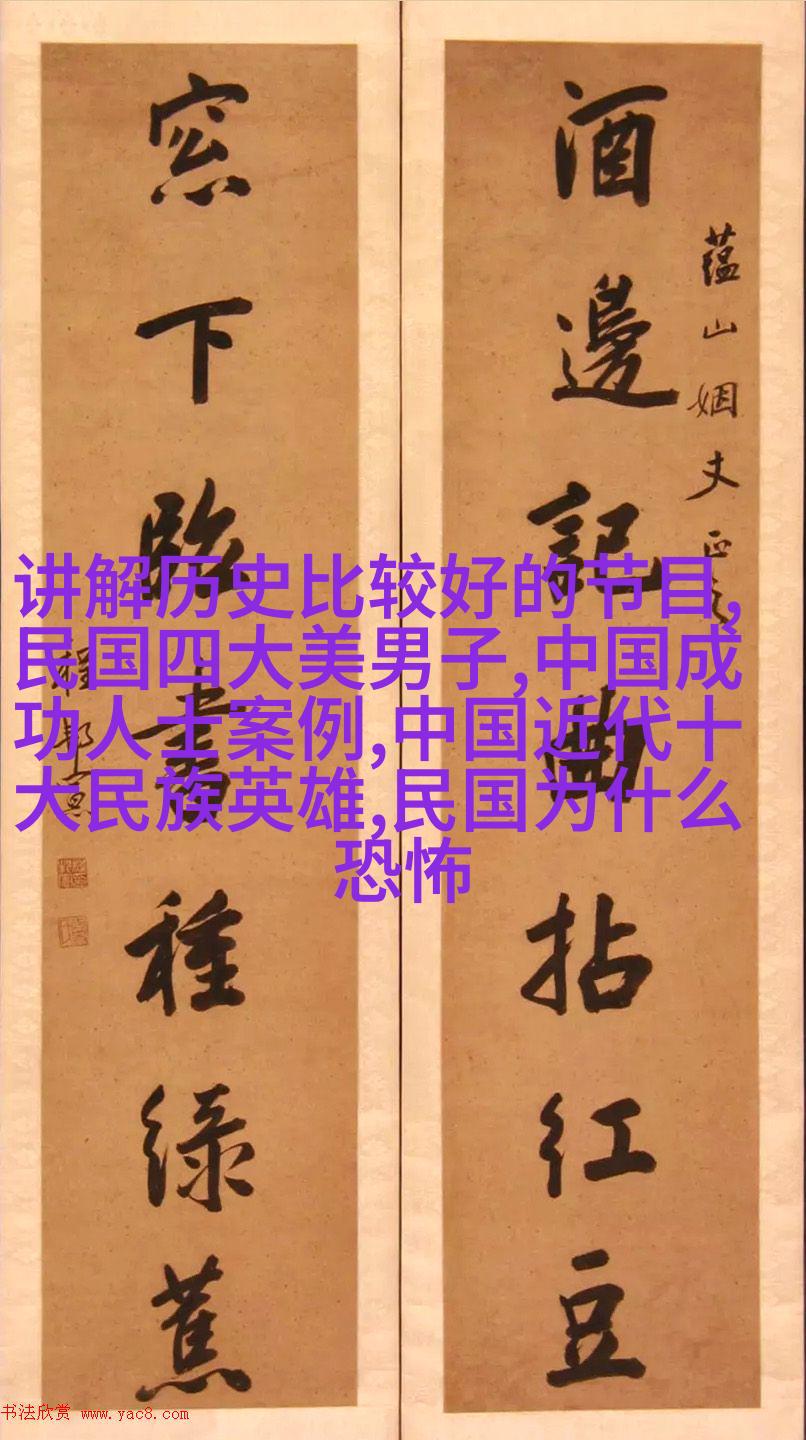 蘊山姻丈正
酒邊記曲拈紅豆
窓下臨書種綠蕉
程邦
讲解历史比较好的节目,
民国四大美男子,中国成
功人士案例,中国近代十
大民族英雄,民国为什么
恐怖
书法欣赏 www.yac8.com